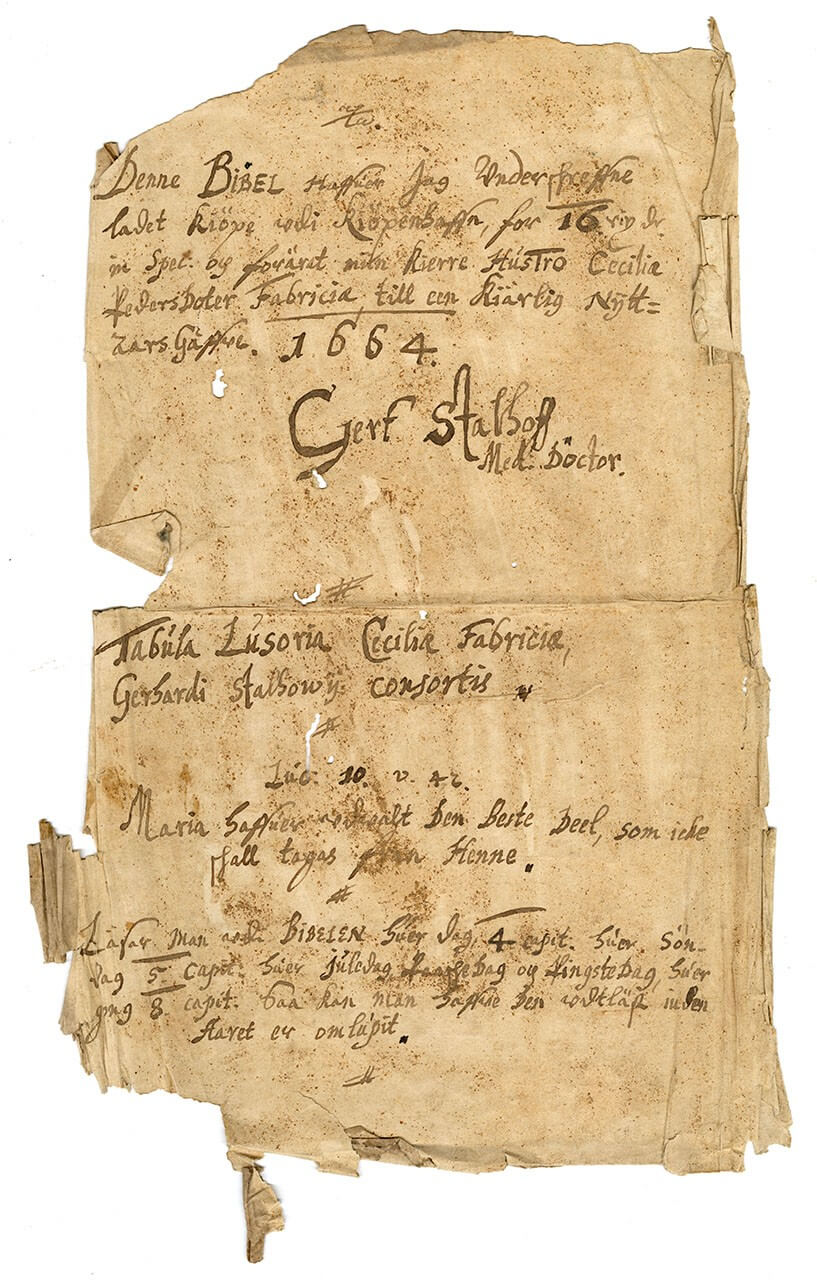 Denne BIBEL Haffuer Jag Underskreffne
ladet Kiöpe udi Kiöpenhaffn, for 16 rix dr.
in Spec. og foräret min Kierre HUSTRO Cecilia
Pedersdoter Fabricia, till een Kiärlig Nytt=
Aars Gäffue. 1664.
Gert Stalhoff
Med. Döctor.
Tabula Lusoria Ceciliæ Fabriciæ,
Gerhardi Stalhowij. consortis
Luc. 10. v. 42.
Maria haffuer udvalt Den Beste Deel, som icke
skall tagas fran Henne.
Läsar Man udi BIBELEN huer dag, 4 capit. huer Sön-
dag 5 Capit. huer Juledag Paaskedag og Pingstedag, huer
gong 8. capit. Saa kan man haffue den udtläst inden
Aaret er omlupit.